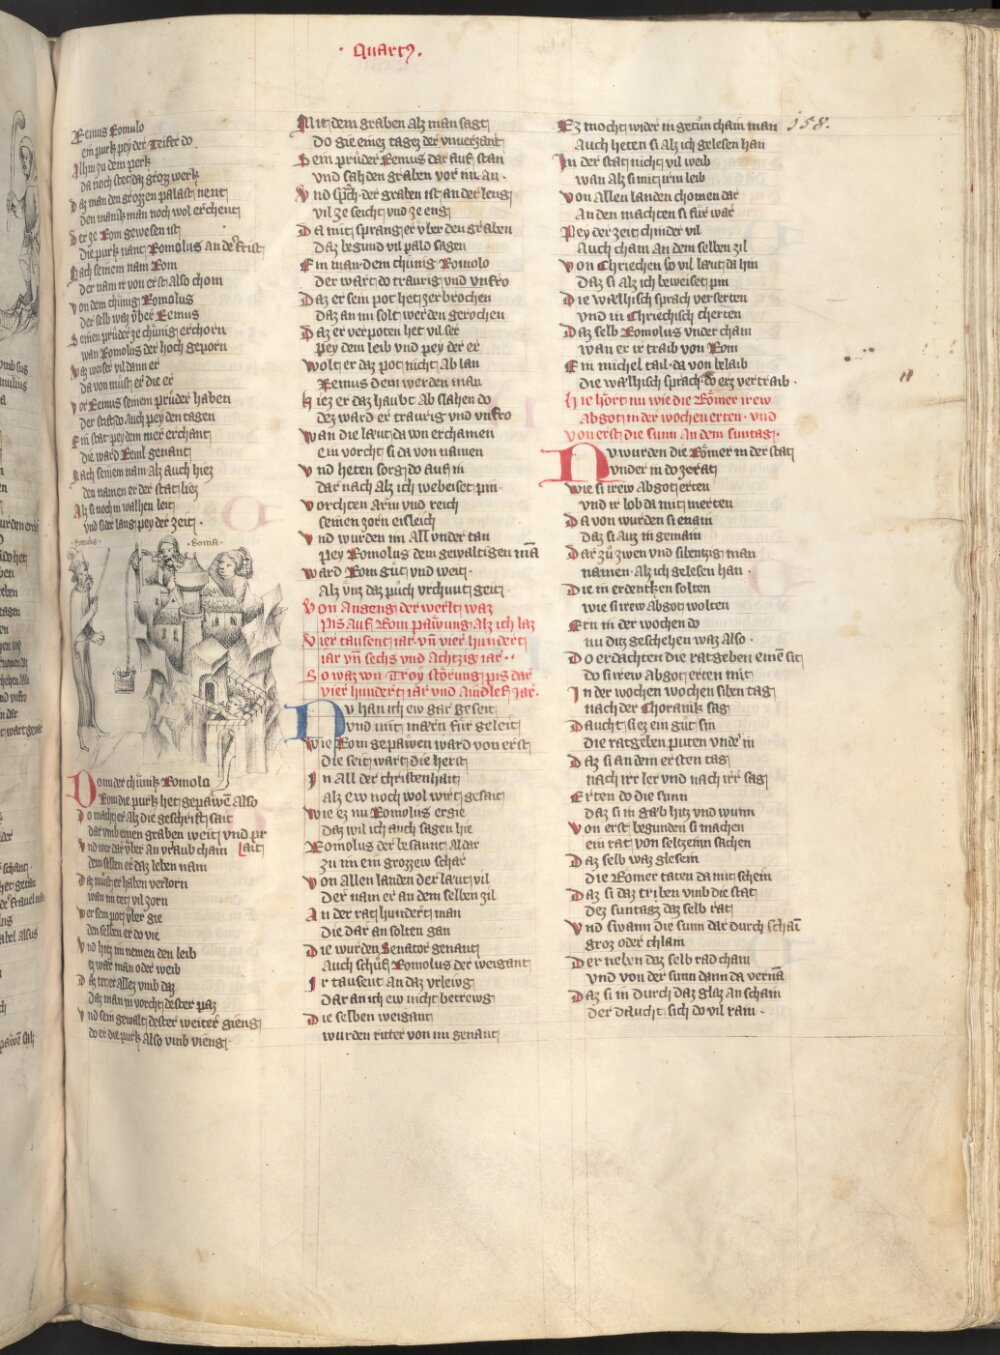 · Quart⁹ .
158.
Remus Romulo
ein purk pey der Teifer do
Alhin zu dem perk
da noch stet daz groz werk
Daz man den grozzen palast nent
den manik man noch wol erchent
Der ze Rom gewesen ist
die purk nant Romolus an der frist
Nach seinem nam Rom
der nam ir von erst also chom
von dem chünig Romolus
der selb waz vber Remus
Seinen prüder ze chünig erchorn
wan Romolus der hoch geporn
waz weiser vil dann er
da von must er die er
vor Remus seinem prüder haben
der stift do auch pey den tagen
Ein stat pey dem mer erchant
die ward Reml genant
Nach seinem nam alz auch hiez
den namen er der stat liez
Alz si noch in walhen leit
vnd sider lang pey der zeit ·
· Roma ·
Von der chünik Romola
Rom die purk het gepawē also
Do macht er alz die geschrift sait
dar vmb einen graben weit vnd prait
Vnd wer dar vber an vraub cham
dem selben er daz leben nam
Daz müst er haben verlorn
wan im tet vil zorn
wer sein pot vber gie
den selben er do vie
Vnd hiez im nemen den leib
ez war man oder weib
Daz tet er allez vmb daz
daz man in vorcht dester paz
Vnd sein gewalt dester weiter gieng
do er die purk also vmb vieng
Mit dem graben alz man sagt
do gie eines tagez der vnuerzagt
Sein prüder Remus dar auf stan
vnd sah den graben vor im an ·
Vnd sprch der graben ist an der leng
vil ze seicht vnd ze eng
Da mit sprang er vber den graben
daz begund vil palo sagen
Ein man dem chünig Romolo
der wart do traurig vnd vnfro
Daz er sein pot het zerbrochen
daz an im solt werden gerochen
Daz er verpoten het vil ser
pey dem leib vnd pey der er
wolt er daz pot nicht ab lan
Remus dem werden man
hiez er daz haubt ab slahen do
dez ward er traurig vnd vnfro
wan die læut da von erchamen
ein vorcht si da von namen
Vnd heten sorg do auf in
dar nach alz ich webeiset pin
vorchten arm vnd reich
seinen zorn eisleich
Vnd wurden im all vnder tan
pey Romolus dem gewaltigen mā
ward Rom güt vnd weit
alz vnz daz püch vrchunt geit ·
Von angeng der werlt waz
pis auf Rom pawung alz ich laz
Vier tausent iar vn̄ vier hundert
iar vn̄ sechs vnd achtzig iar · ·
So waz von Troy störung pis dar
vier hundert iar vnd aindlef iar ·
Nv han ich ew gar geseit
vnd mit mærn für geleit
wie Rom gepawen ward von erst
die seit wart die herst
In all der christenhait
alz ew noch wol wirt gesait
wie ez nu Romolus ergie
daz wil ich auch sagen hie
Romolus der besant aldar
zu im ein grozzew schar
Von allen landen der læut vil
der nam er an dem selben zil
An der rat hundert man
die dar an solten gan
Die wurden Senator genant
auch schuf Romolus der weigant
Ir tausent an daz vrlewg
dar an ich ew nicht betrewg
Die selben weigant
wurden ritter von im genant
Ez mocht wider in getün chain man
auch heten si alz ich gelesen han
In der stat nicht vil weib
wan alz si mit irm leib
von allen landen chomen dar
an den machten si für war
Pey der zeit chinder vil
auch cham an dem selben zil
von Chriechen so vil læut da hin
daz si alz ich beweiset pin
Die wælhisch sprach verserten
vnd in Chriechisch cherten
Daz selb Romolus vnder cham
wan er ir traib von Rom
Ein michel tail da von belaib
die wælhisch sprach do erz vertraib ·
hie hört nu wie die Römer irew
abgot in der wochen erten · vnd
von erst die sunn an dem suntag ·
Nv wurden die Römer in der stat
vnder in do ze rat
wie si irew abgot erten
vnd ir lob da mit merten
Da von wurden si enain
daz si auz in gemain
Dar zů zwen vnd sibentzig man
namen · alz ich gelesen han ·
Die in erdenken solten
wie si irew abgot wolten
Ern in der wochen do
nu ditz geschehen waz also ·
Do erdachten die ratgeben einē sit
do si irew abgot erten mit
In der wochen wochen siben tag
nach der Choranik sag
Daucht siez ein güt sin
die ratgeben puten vnder in
Daz si an dem ersten tag
nach irr ler vnd nach irr sag
Erten do die sunn
daz si in gæb hitz vnd wunn
von erst begunden si machen
ein rat von seltzeinn sachen
Daz selb waz glesein
die Römer taten da mit schein
Daz si daz triben vmb die stat
dez suntagz daz selb rat
Vnd swann die sunn dar durch schain
groz oder chlain
Der neben daz selb rad cham
vnd von der sunn dann da vernā
Daz si in durch daz glaz an schain
der daucht sich do vil rain ·